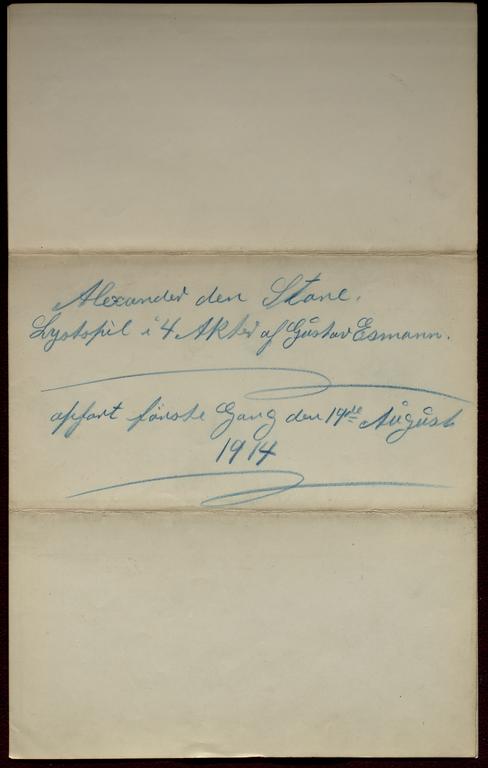 Alexander den Store.
Lystspil i 4 Akter af Gustav Esmann.
opført første Gang den 19de August
1914